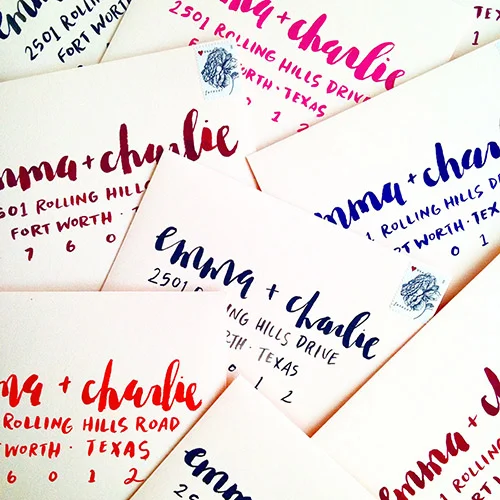 emma
2501 ROLLING
FORT WORTH
emma + charlie
2501 ROLLING HILLS DRIVE
WORTH · TEXAS
1 2
TEXAS
+ charlie
ROLLING HILLS
FORT WORTH ·
7 6 0
emma + char
ROLLING HILLS
WORTH · TEXAS
0 1
emma + charlie
2501 HILLS DRIVE
TEXAS
0 1 2
+ charlie
ROLLING HILLS ROAD
WORTH · TEXAS
6 0 1 2
emma
emma + ch
ROLLING
WORTH